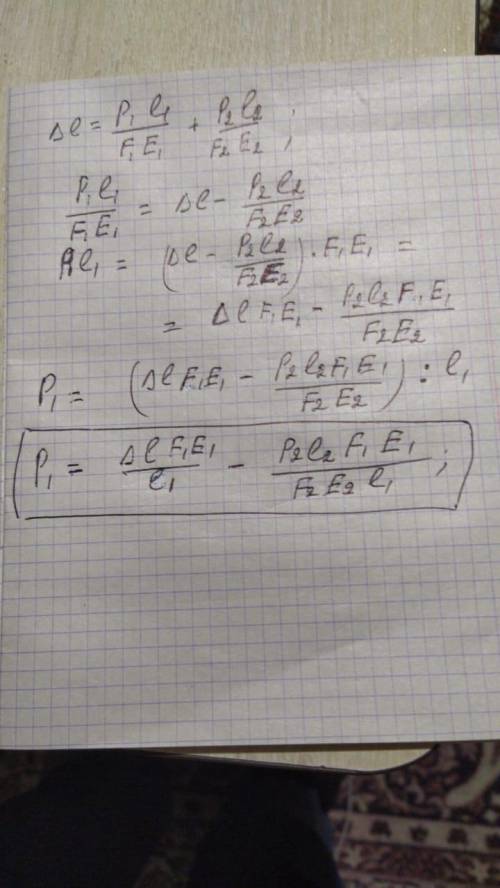 Δl = P₁ l₁ / F₁ E₁ + P₂ l₂ / F₂ E₂ ;
P₁ l₁ / F₁ E₁ = Δl - P₂ l₂ / F₂ E₂
P₁ l₁ = (Δl - P₂ l₂ / F₂ E₂) · F₁ E₁ =
= Δl F₁ E₁ - P₂ l₂ F₁ E₁ / F₂ E₂
P₁ = (Δl F₁ E₁ - P₂ l₂ F₁ E₁ / F₂ E₂) : l₁
P₁ = Δl F₁ E₁ / l₁ - P₂ l₂ F₁ E₁ / F₂ E₂ l₁ ;